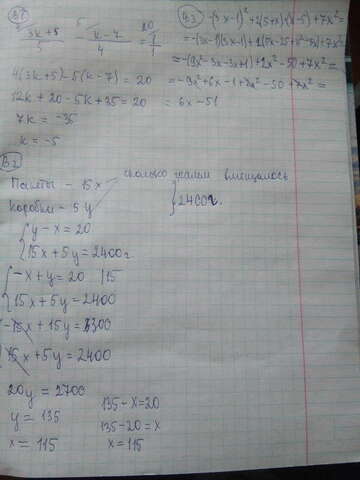 В1
(3k+5)/5 - (k-7)/4 = 20/1
4(3k+5)-5(k-7) = 20
12k + 20 - 5k + 35 = 20
7k = -35
k = -5
В3 -(3x-1)² + 2(5+x)(x-5) + 7x² =
= -(3x-1)(3x-1) + 2(5x-25+x²-5x) + 7x² =
= -(9x²-3x-3x+1) + 2x² - 50 + 7x² =
= -9x² + 6x - 1 + 2x² - 50 + 7x² =
= 6x - 51
В2
Пакеты - 15x
Коробки - 5y
сколько вмещалось
2400г.
{ y - x = 20
15x + 5y = 2400г
{ -x + y = 20 |15
15x + 5y = 2400
-15x + 15y = 300
15x + 5y = 2400
20y = 2700
y = 135
x = 115
135 - x = 20
135 - 20 = x
x = 115